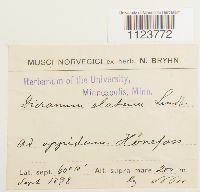 1123772
MUSCI NORVEGICI ex herb. N. BRYHN
Herbarium of the University,
Minneapolis, Minn.
Dicranum elatum Lindb.
Ad oppidum Hönefos
Lat. sept. 60°10' Alt. supra mare 200 m
Sept. 1898